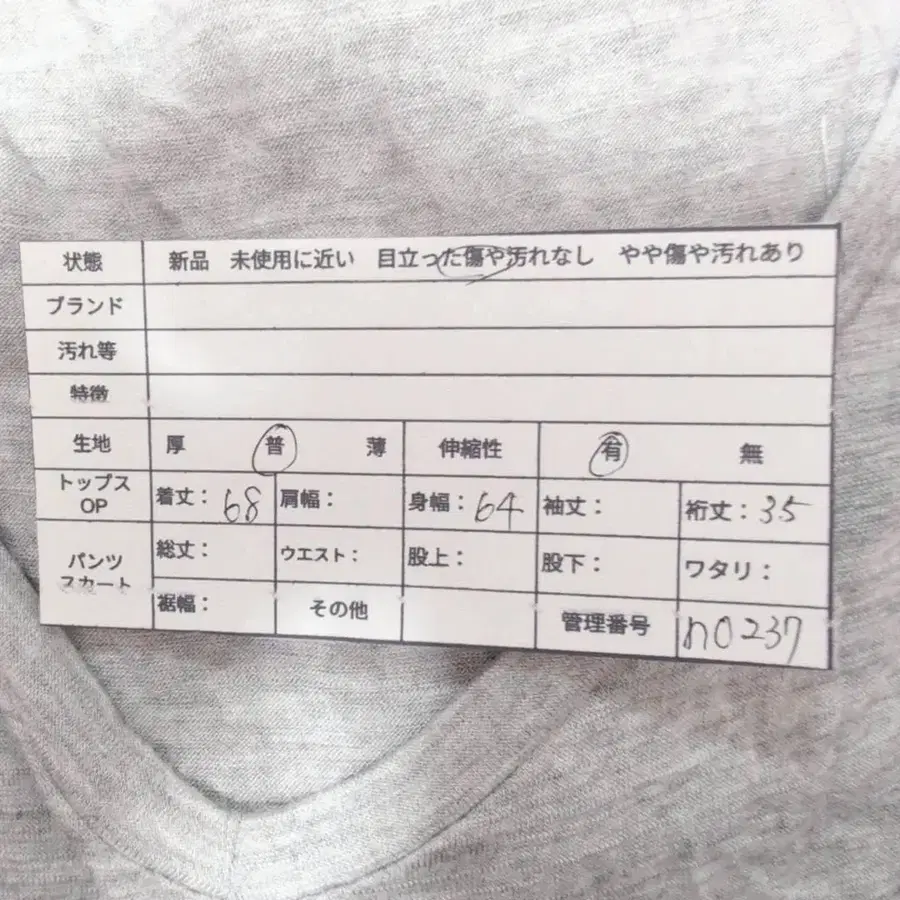 状態 新品 未使用に近い 目立った傷や汚れなし やや傷や汚れあり
ブランド
汚れ等
特徴
生地 厚 普 薄 伸縮性 有 無
トップス OP 着丈：68 肩幅： 身幅：64 袖丈： 裄丈：35
パンツ スカート 総丈： ウエスト： 股上： 股下： ワタリ：
裾幅： その他 管理番号 no237